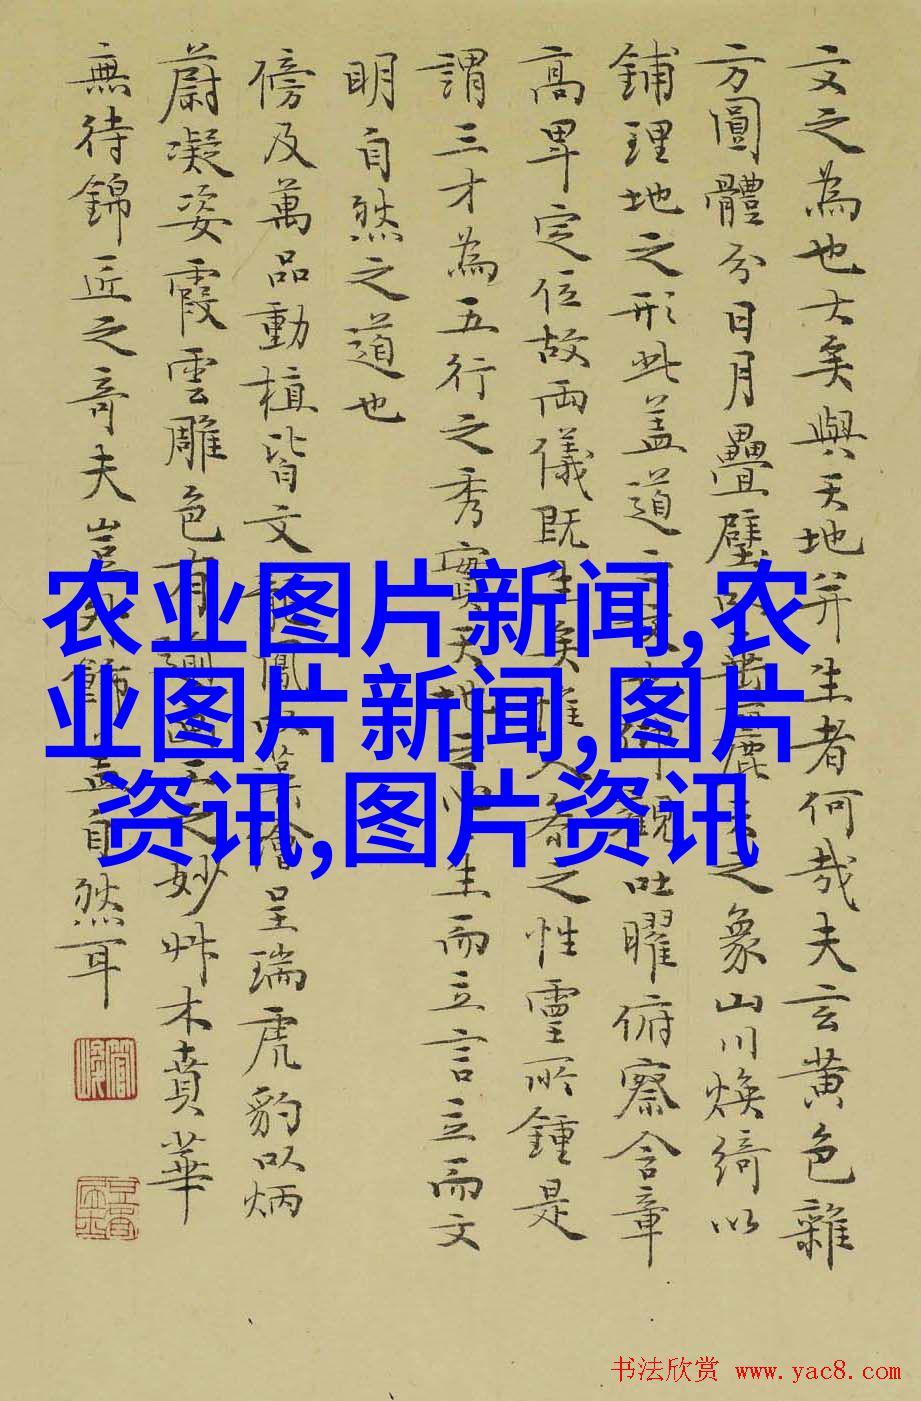 文之為也大矣與天地并生者何哉夫玄黃色雜
方圓體分日月疊璧以垂麗天之象山川煥綺以
鋪理地之形此盖道之文也仰觀吐曜俯察含章
高卑定位故兩儀既生矣惟人参之性靈所鍾是
謂三才為五行之秀實天地之心生而立言立而文
明自然之道也
傍及萬品動植皆文龍鳳以藻繪呈瑞虎豹以炳
蔚凝姿霞雲雕色有踰畫工之妙艸木賁華
無待錦匠之奇夫豈外飾盖自然耳
农业图片新闻,农
业图片新闻,图片
资讯,图片资讯
书法欣赏 www.yac8.com